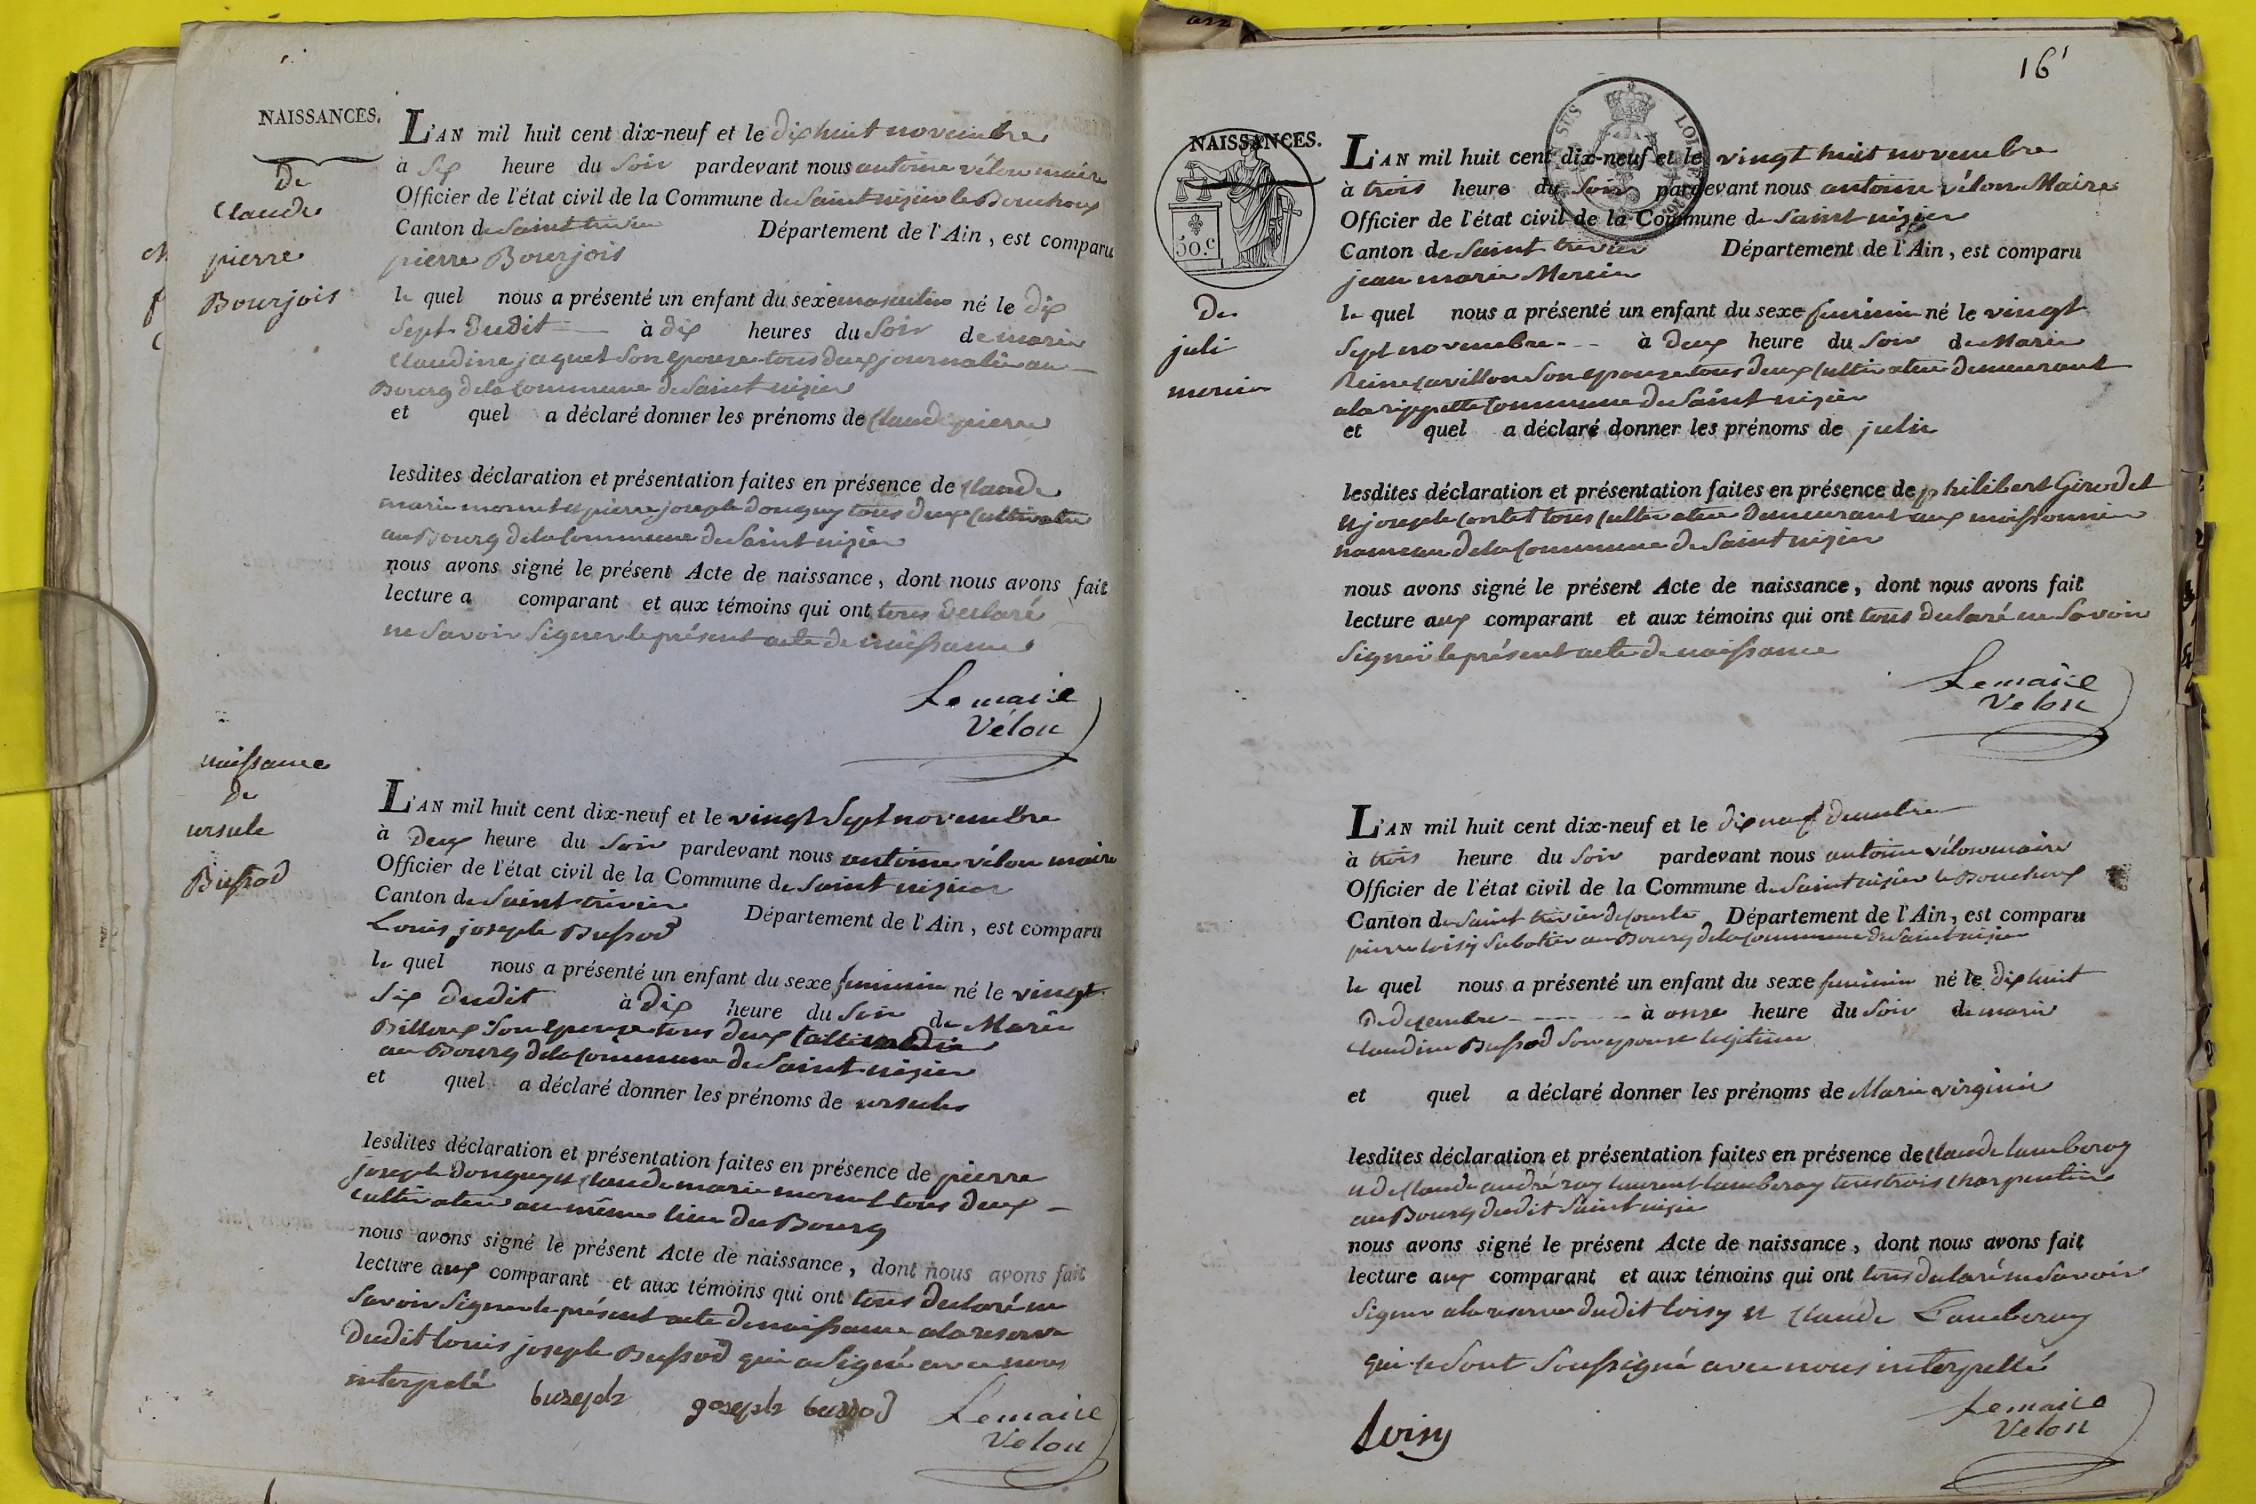 NAISSANCES.
de
Claude
pierre
Bourjois
L'AN mil huit cent dix-neuf et le dix huit novembre
à six heure du soir pardevant nous antoine vélon maire
Officier de l'état civil de la Commune de Saint nizier le Bouchoux
Canton de Saint trivier Département de l'Ain, est comparu
pierre Bourjois
le quel nous a présenté un enfant du sexe masculin né le dix
sept dudit à dix heures du soir de marie
Claudine jaquet son epouze tous deux journalier au
Bourg de la Commune de Saint nizier
et quel a déclaré donner les prénoms de Claude pierre
lesdites déclaration et présentation faites en présence de Claude
marie mornet et pierre joseph donguy tous deux Cultivateur
au Bourg de la Commune de Saint nizier
nous avons signé le présent Acte de naissance, dont nous avons fait
lecture a comparant et aux témoins qui ont tous declaré
ne savoir signer le présent acte de naissance
Le maire
Vélon
naissance
de
ursule
Bussod
L'AN mil huit cent dix-neuf et le vingt sept novembre
à deux heure du soir pardevant nous antoine vélon maire
Officier de l'état civil de la Commune de Saint nizier
Canton de Saint trivier Département de l'Ain, est comparu
Louis joseph Bussod
le quel nous a présenté un enfant du sexe feminin né le vingt
six dudit à dix heure du soir de Marie
Billoux son epouze tous deux
au Bourg de la Commune de Saint nizier
et quel a déclaré donner les prénoms de ursule
lesdites déclaration et présentation faites en présence de pierre
joseph donguy et Claude marie mornet tous deux
cultivateur au même lieu du Bourg
nous avons signé le présent Acte de naissance, dont nous avons fait
lecture aux comparant et aux témoins qui ont tous declaré ne
savoir signer le présent acte de naissance a la reserve
dudit Louis joseph Bussod qui a signé avec nous
interpelé
joseph bussod
Le maire
Velon
16
NAISSANCES.
50.c
de
juli
mercier
L'AN mil huit cent dix-neuf et le vingt huit novembre
à trois heure du soir pardevant nous antoine vélon Maire
Officier de l'état civil de la Commune de Saint nizier
Canton de Saint trivier Département de l'Ain, est comparu
jean marie Mercier
le quel nous a présenté un enfant du sexe feminin né le vingt
sept novembre à deux heure du soir de Marie
Reine Cavillon son epouze tous deux Cultivateur demeurant
a la rippette Commune de Saint nizier
et quel a déclaré donner les prénoms de julie
lesdites déclaration et présentation faites en présence de philibert Girodet
et joseph Contet tous cultivateur demeurant aux moissonnier
hameau de la Commune de Saint nizier
nous avons signé le présent Acte de naissance, dont nous avons fait
lecture aux comparant et aux témoins qui ont tous declaré ne savoir
signer le présent acte de naissance
Le maire
Velon
L'AN mil huit cent dix-neuf et le dix neuf decembre
à trois heure du soir pardevant nous antoine vélon maire
Officier de l'état civil de la Commune de Saint nizier le Bouchoux
Canton de Saint trivier de Courte Département de l'Ain, est comparu
pierre Loisy sabotier au Bourg de la Commune de Saint nizier
le quel nous a présenté un enfant du sexe feminin né le dix huit
de decembre à onze heure du soir de marie
Claudine Bussod son epouze legitime
et quel a déclaré donner les prénoms de Marie virginie
lesdites déclaration et présentation faites en présence de Claude Lamberoy
et de Claude andré roy laurent lamberoy tous trois charpentier
au Bourg dudit Saint nizier
nous avons signé le présent Acte de naissance, dont nous avons fait
lecture aux comparant et aux témoins qui ont tous declaré ne savoir
signer a la reserve dudit Loisy et Claude Lamberoy
qui se sont soussigné avec nous interpellé
Loisy
Le maire
Velon